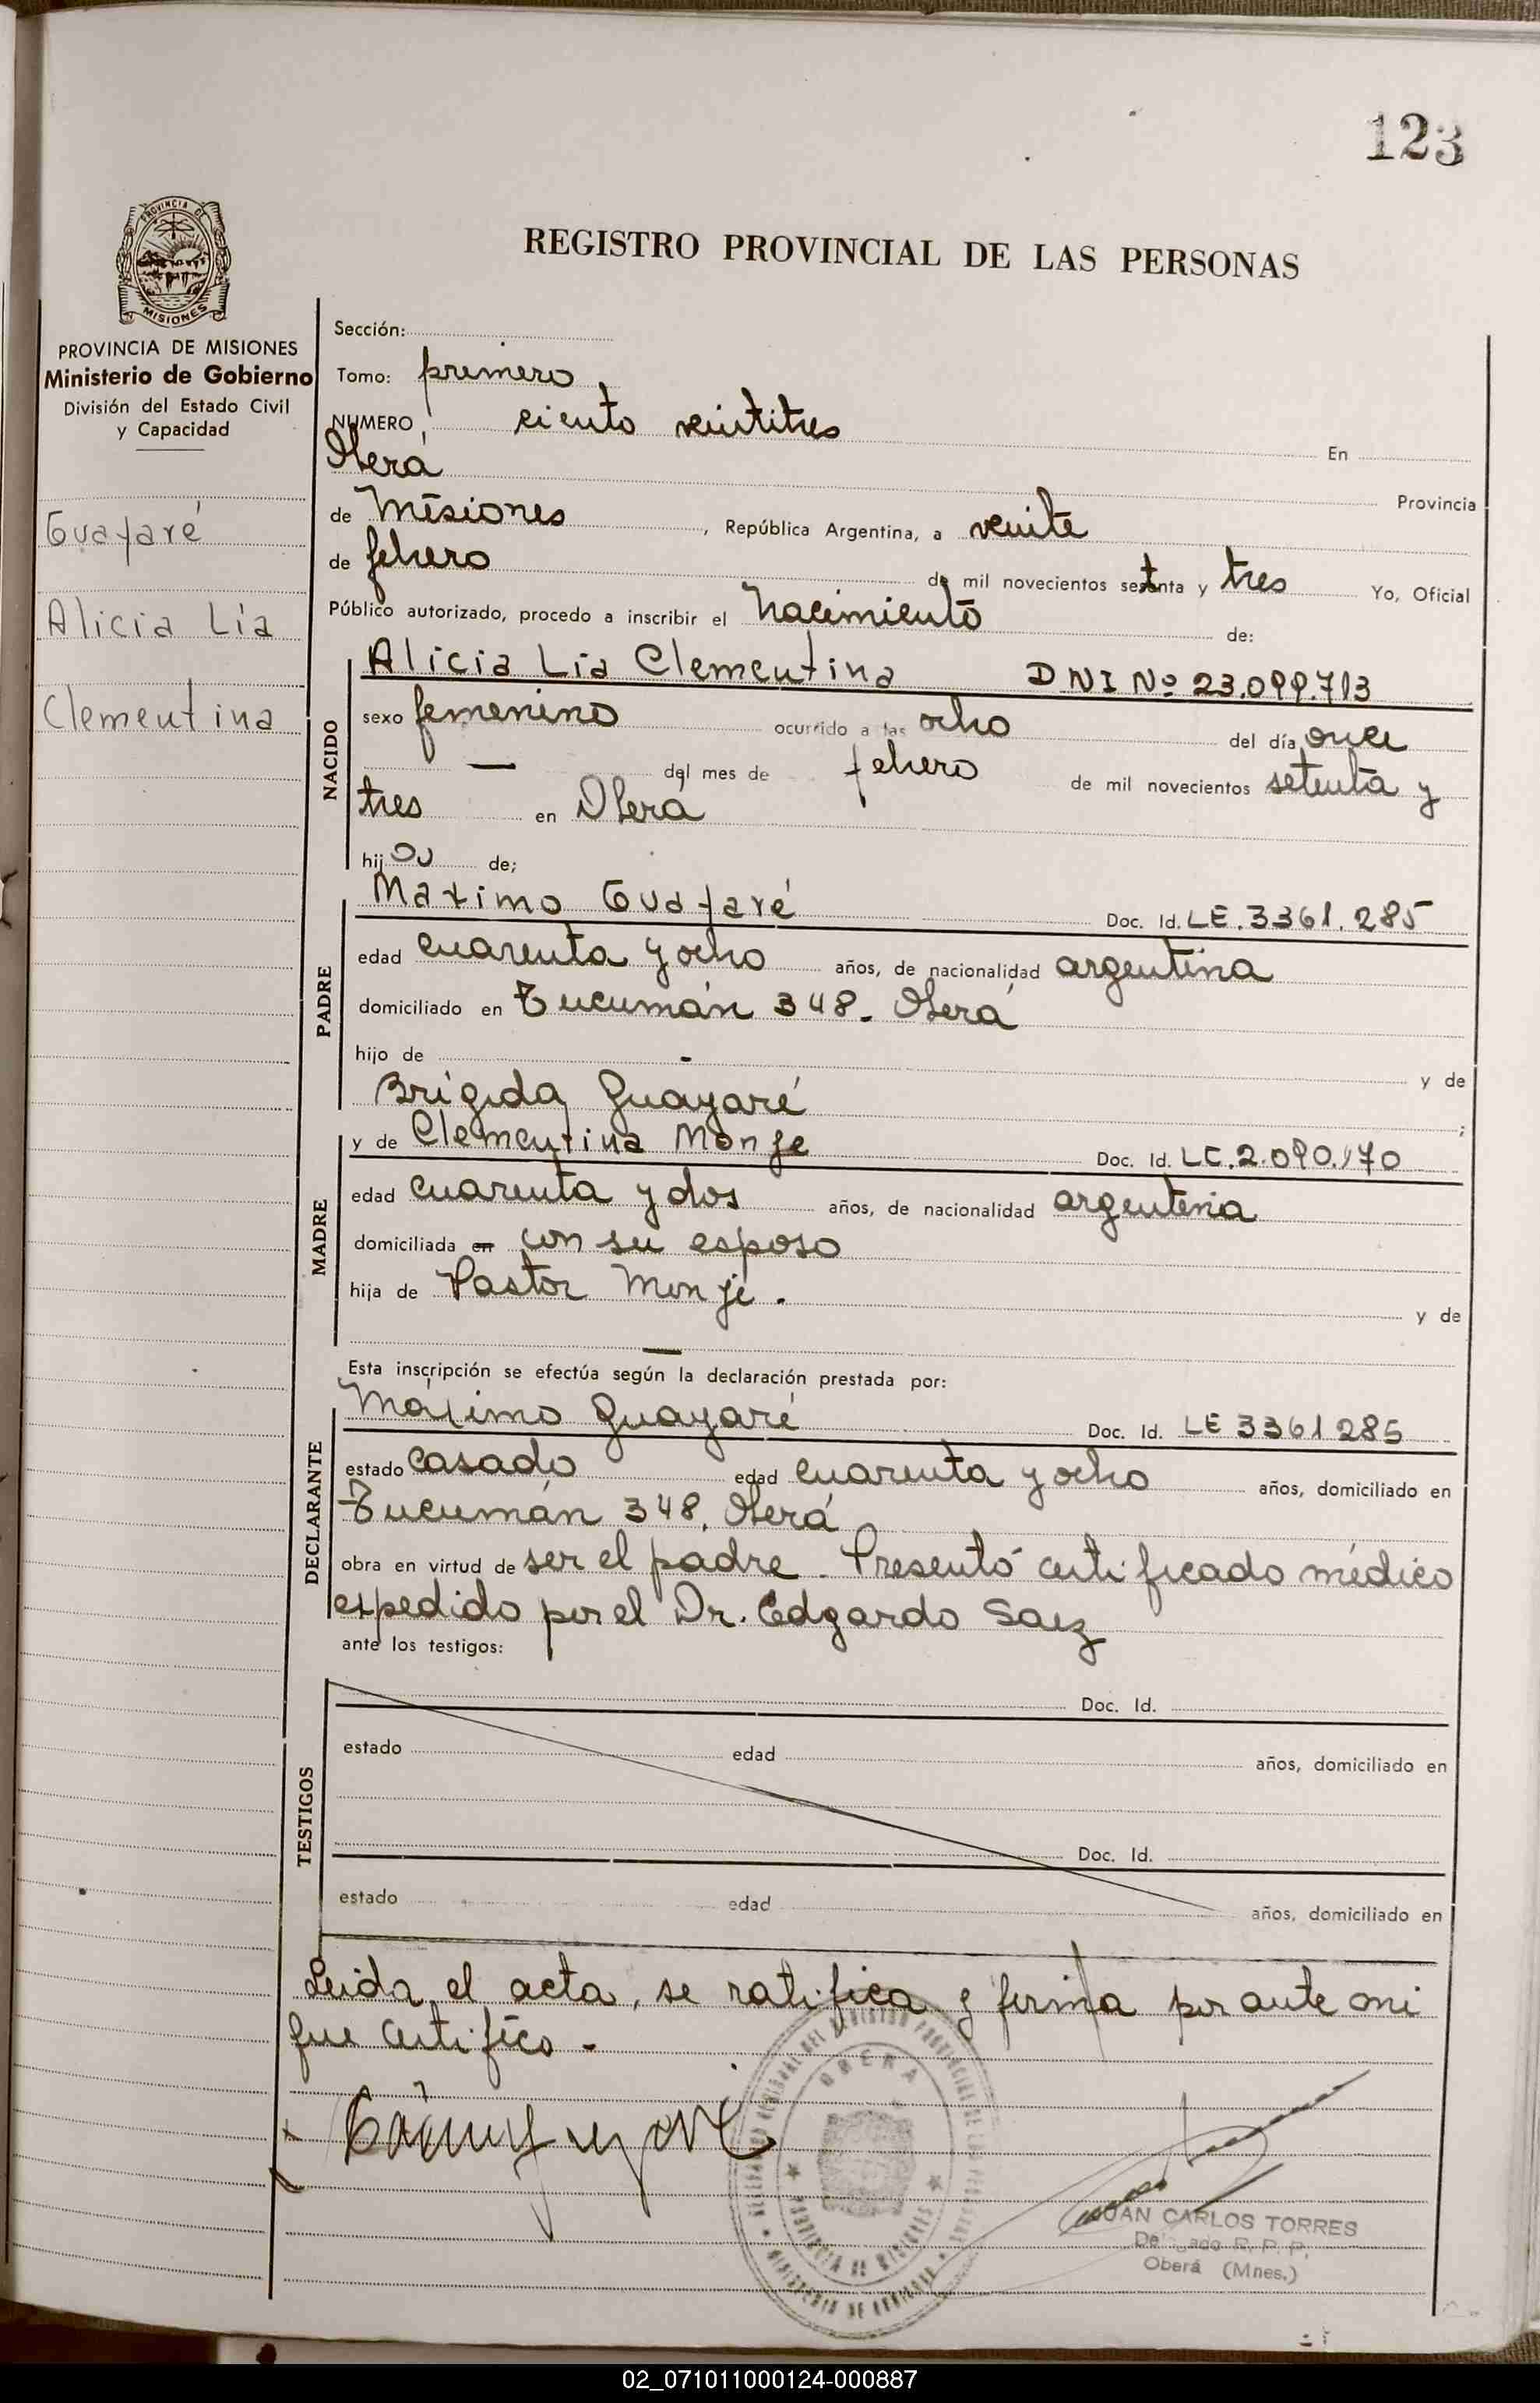 123
PROVINCIA DE
MISIONES
REGISTRO PROVINCIAL DE LAS PERSONAS
PROVINCIA DE MISIONES
Ministerio de Gobierno
División del Estado Civil
y Capacidad
Guayaré
Alicia Lia
Clementina
Sección:
Tomo: primero
NUMERO ciento veintitres En
Oberá Provincia
de Misiones, República Argentina, a veinte
de febrero de mil novecientos setenta y tres Yo, Oficial
Público autorizado, procedo a inscribir el Nacimiento de:
NACIDO
Alicia Lia Clementina DNI Nº 23.099.713
sexo femenino ocurrido a las ocho del día once
— del mes de febrero de mil novecientos setenta y
tres en Oberá
hij de;
PADRE
Maximo Guayaré Doc. Id. LE.3361.285
edad cuarenta y ocho años, de nacionalidad argentina
domiciliado en Tucumán 348. Oberá
hijo de - y de
Brígida Guayaré ;
MADRE
y de Clementina Monje Doc. Id. LC.2.090.170
edad cuarenta y dos años, de nacionalidad argentina
domiciliada en con su esposo
hija de Pastor Monje. y de
—
Esta inscripción se efectúa según la declaración prestada por:
DECLARANTE
Máximo Guayaré Doc. Id. LE 3361285
estado casado edad cuarenta y ocho años, domiciliado en
Tucumán 348. Oberá
obra en virtud de ser el padre. Presentó certificado médico
expedido por el Dr. Edgardo Saez
ante los testigos:
TESTIGOS
Doc. Id.
estado edad años, domiciliado en
Doc. Id.
estado edad años, domiciliado en
Leida el acta, se ratifica y firma por ante mi
que certifico -
OBERA
PROVINCIA DE MISIONES
MINISTERIO DE GOBIERNO
JUAN CARLOS TORRES
Delegado R. P. P.
Oberá (Mnes.)
02_071011000124-000887